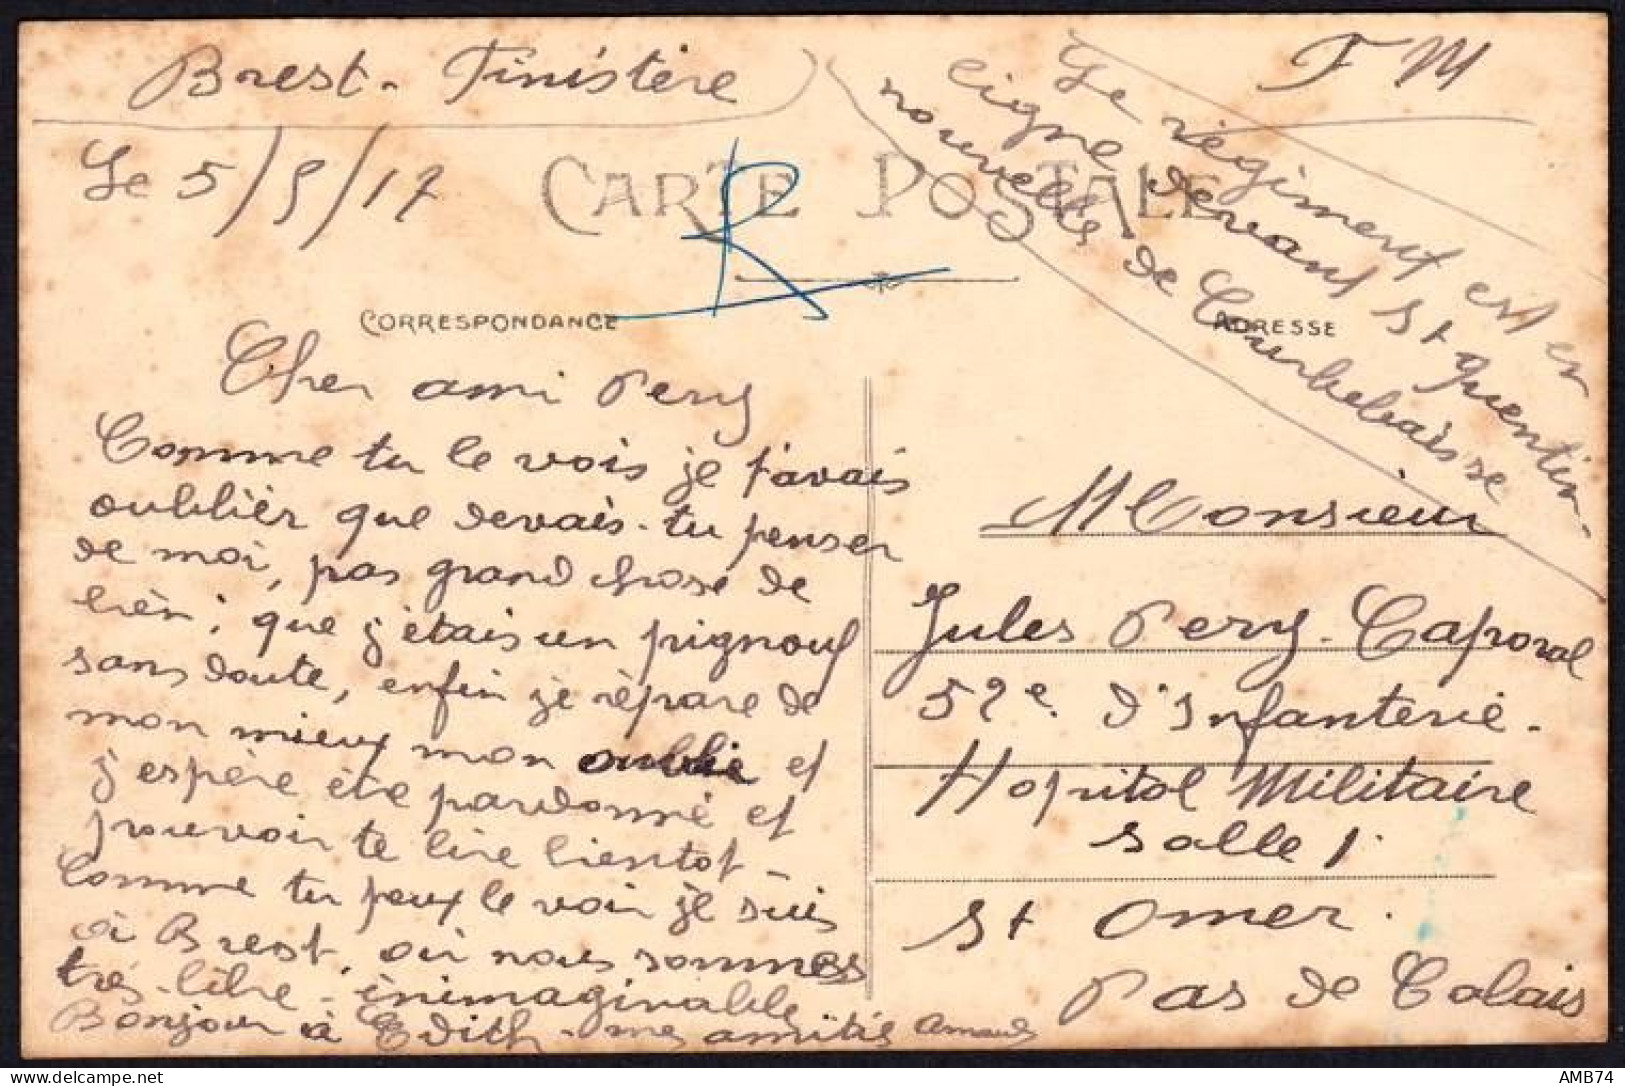 Brest - Finistère
Le 5/5/17
F M
Le régiment est en
ligne devant St Quentin -
nouvelle de Courbebaisse
CARTE POSTALE
R
CORRESPONDANCE
ADRESSE
Cher ami Pery
Comme tu le vois je t'avais
oublièr que devais-tu penser
de moi, pas grand chose de
bien; que j'étais un pignouf
sans doute, enfin je répare de
mon mieux mon oublie et
j'espère être pardonné et
pouvoir te lire bientot -
Comme tu peux le voir je suis
à Brest, où nous sommes
très-libre - inimaginable
Bonjour à Edith - mes amitiés Arnaud
Monsieur
Jules Pery - Caporal
52e d'Infanterie -
Hopital Militaire
Salle 1
St Omer.
Pas de Calais
AMB74